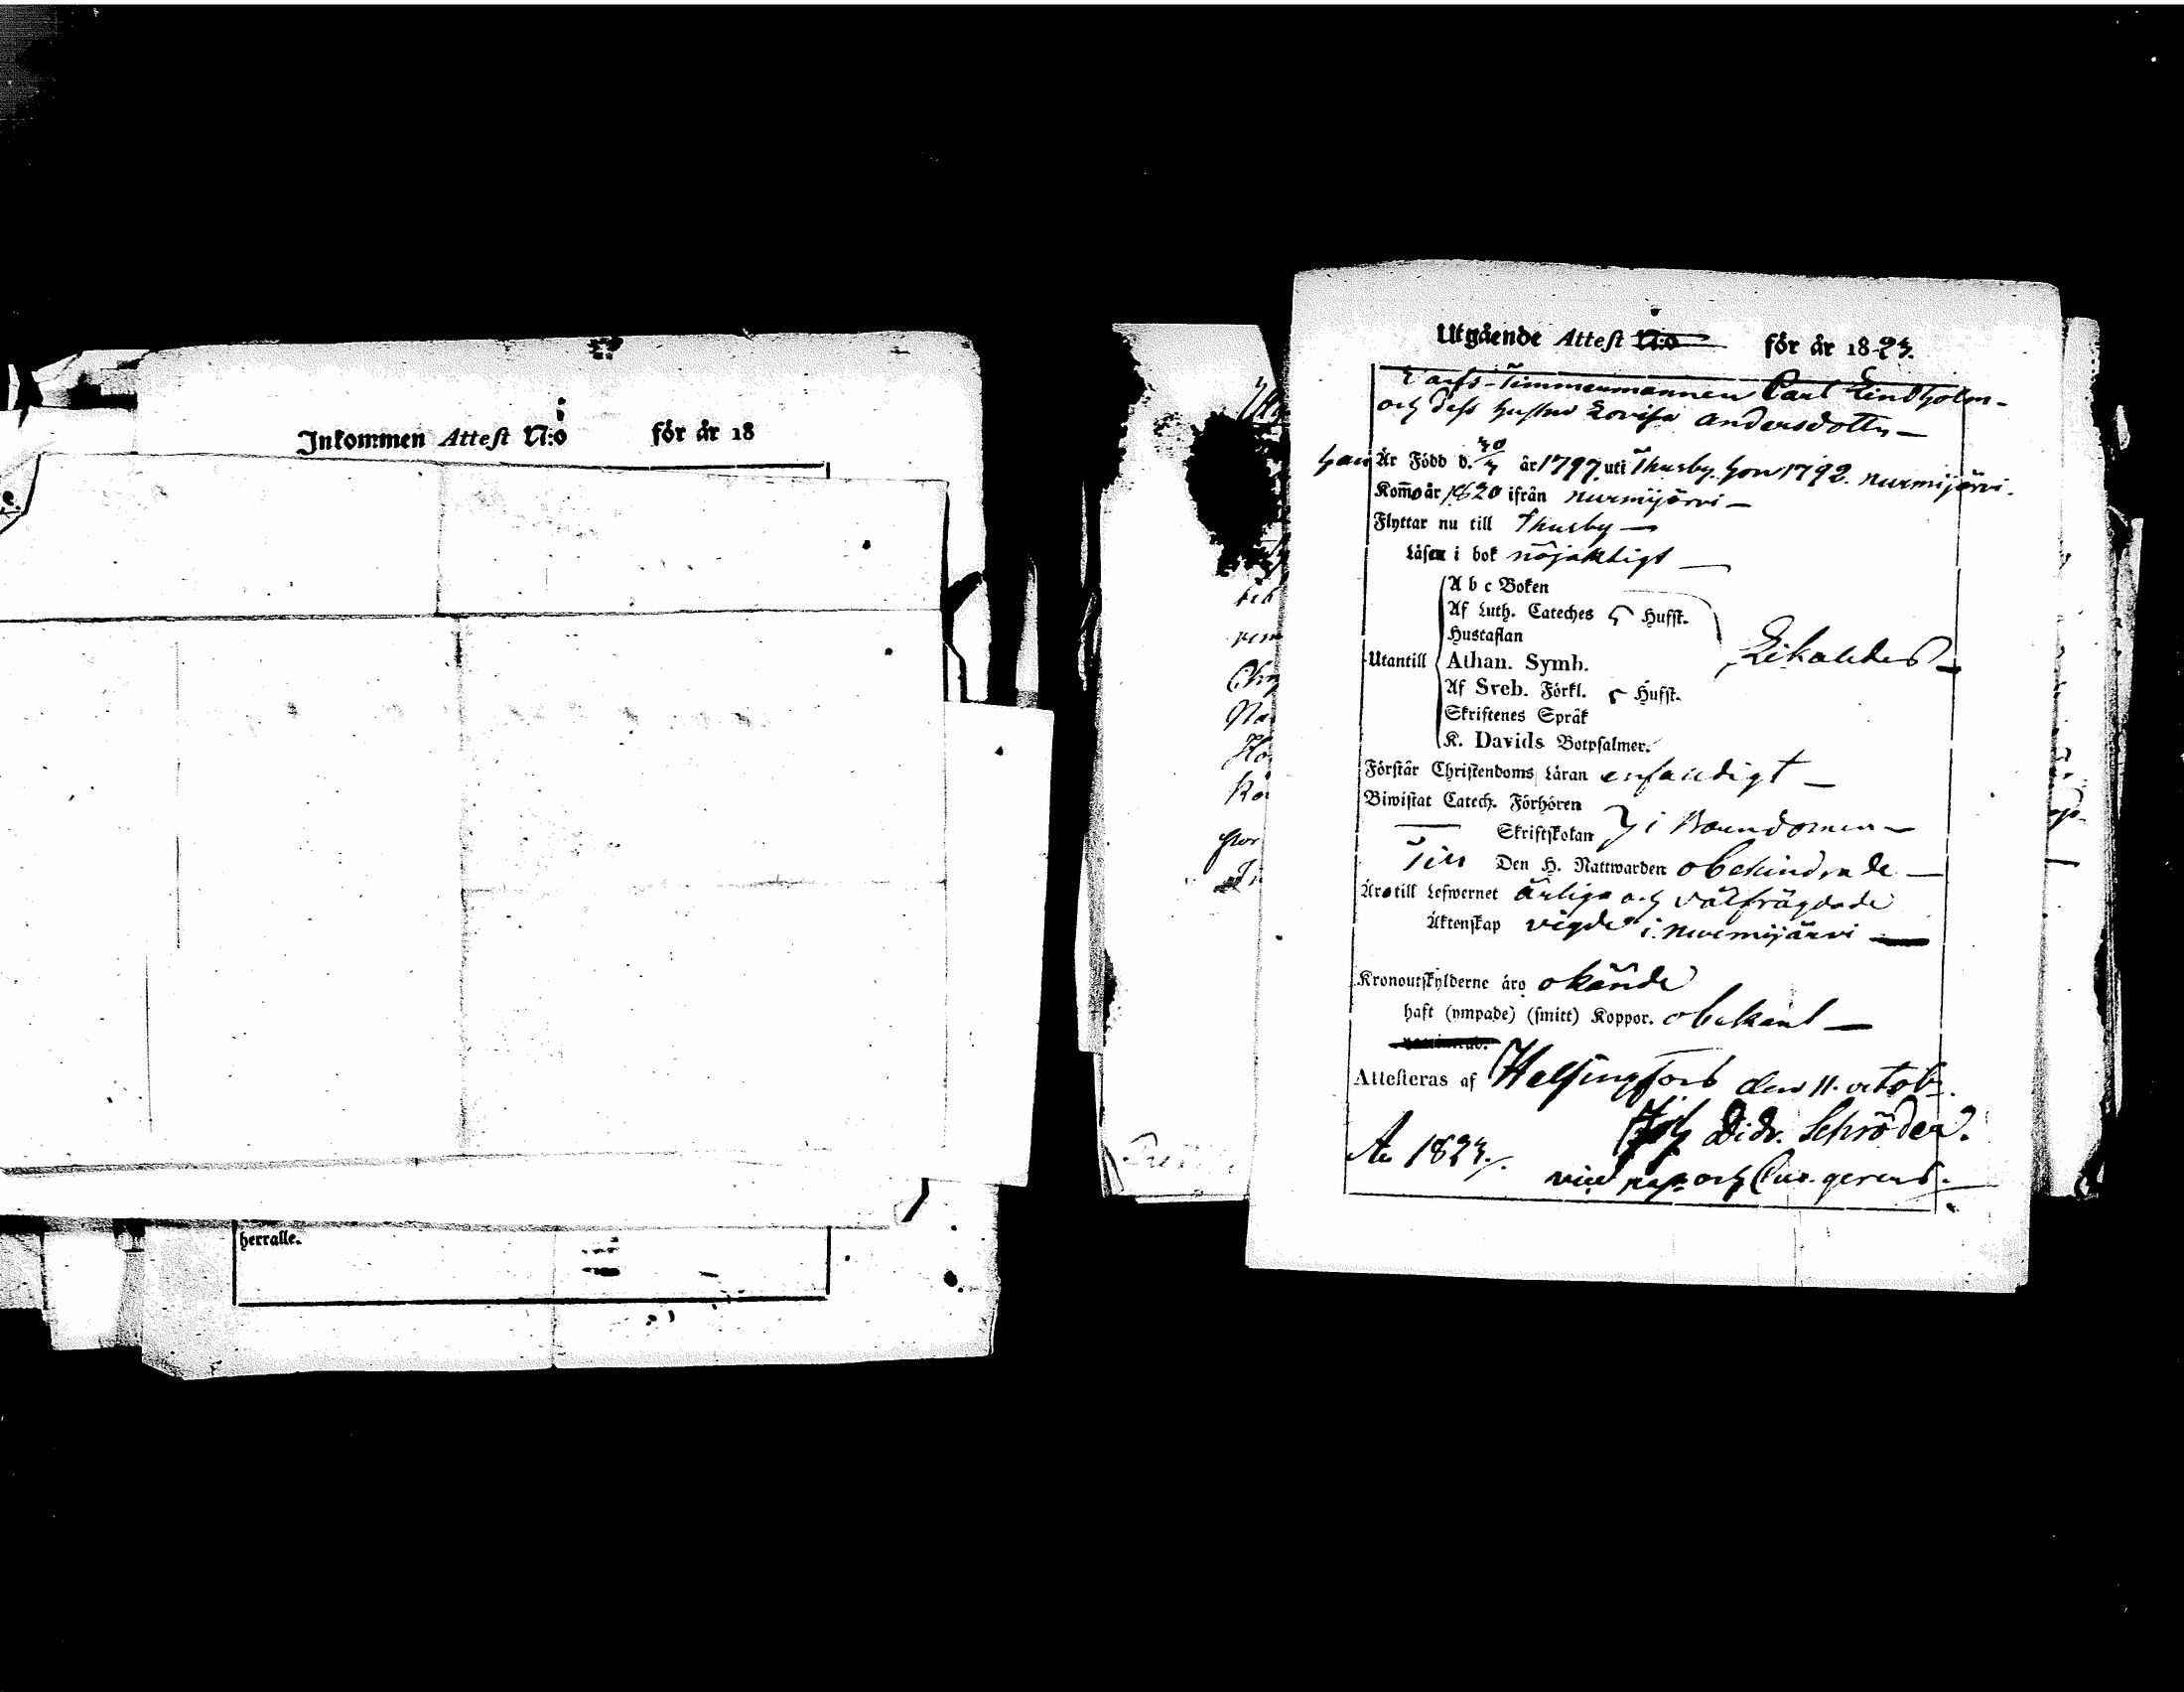 Inkommen Attest N:o för år 18
herralle.
Utgående Attest N:o för år 1823.
Varfs-Timmermannen Carl Lindholm-
och dess hustru Lovisa Andersdotter-
han Är Född d. 30/7 år 1797 uti Thusby. hon 1792. nurmijärvi.
Kom̄o år 1820 ifrån nurmijärvi-
Flyttar nu till Thusby-
Läsa i bok nöjaktigt-
A b c Boken
Af Luth. Cateches Hufst.
Hustaflan
Utantill Athan. Symb. Likaledes-
Af Sveb. Förkl. Hufst.
Skriftenes Språk
K. Davids Botpsalmer.
Förstår Christendoms Läran enfaldigt-
Biwistat Catech. Förhören
Skriftskolan i Barndomen-
Till Den H. Nattwarden obehindrade-
Äro till Lefwernet ärliga och välfrägdade
Äktenskap vigde i nurmijärvi-
Kronoutskylderne äro okände
haft (ympade) (smitt) Koppor. obekant-
Attesteras af Helsingfors den 11. octob.
Didr. Schröder.
Ao 1823.
vice past och Cur. gerens.